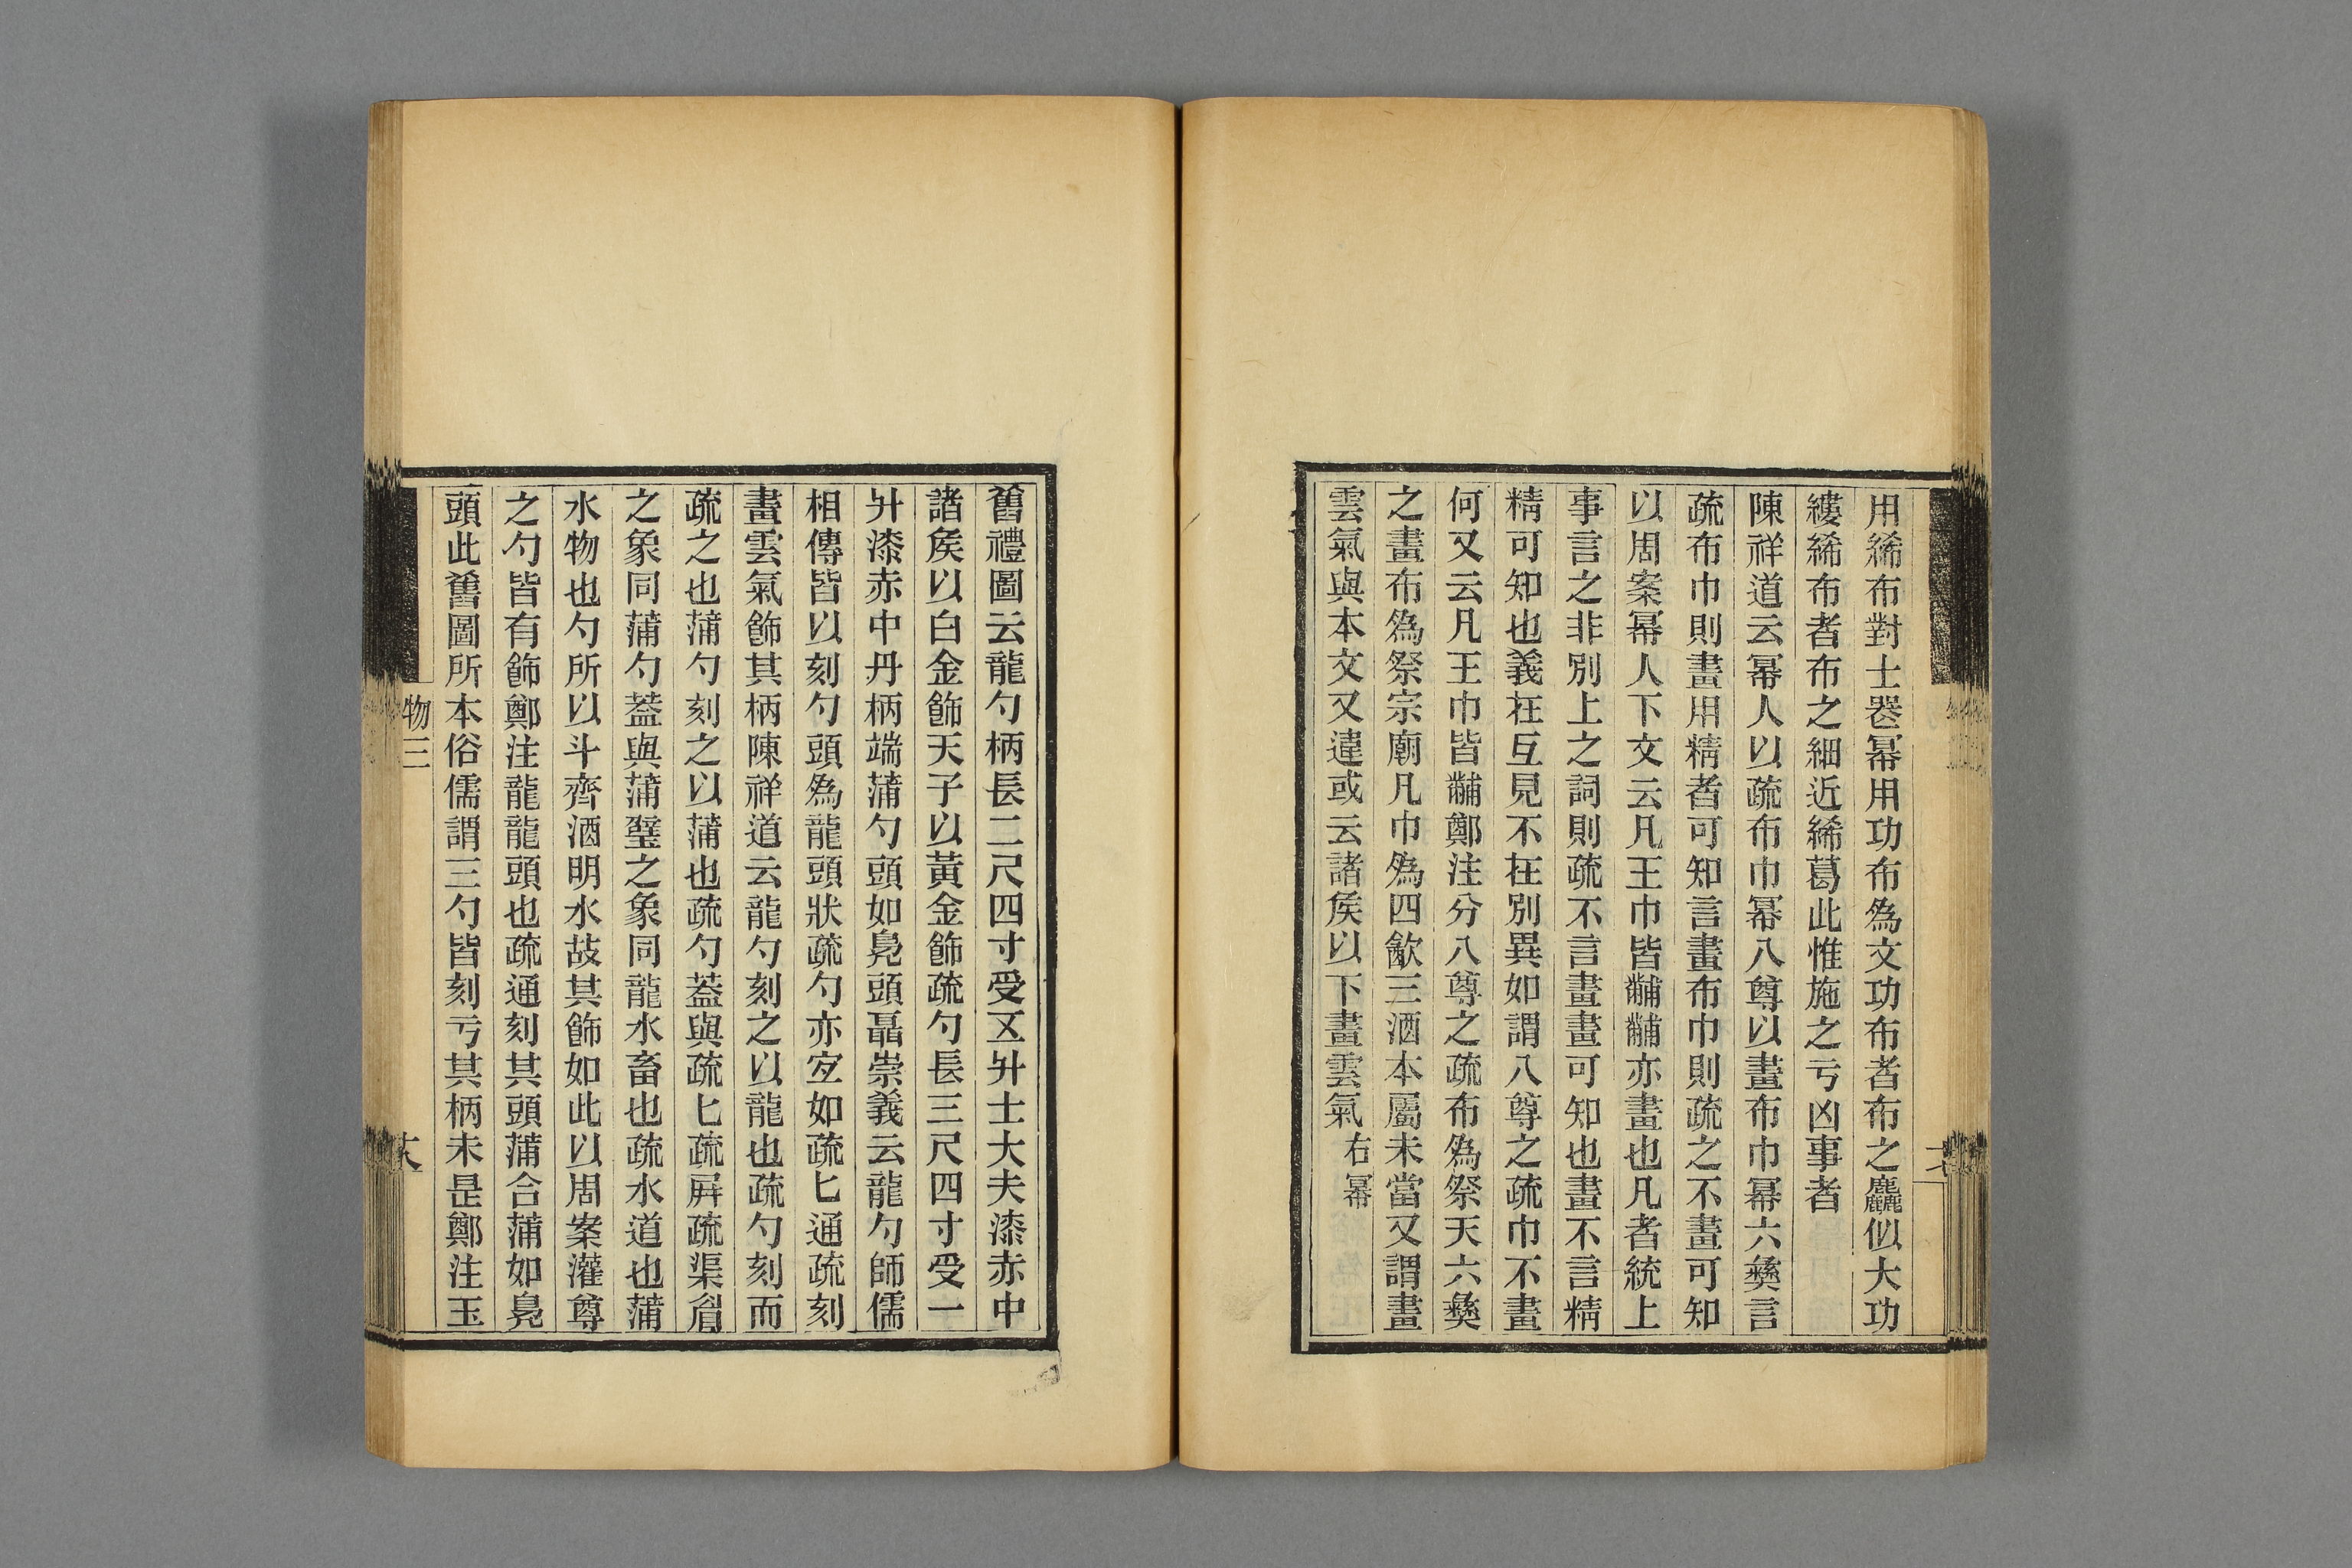 用絺布對士器冪用功布爲文功布者布之麤似大功
縷絺布者布之細近絺葛此惟施之亏凶事者
陳祥道云冪人以疏布巾冪八尊以畫布巾冪六彝言
疏布巾則畫用精者可知言畫布巾則疏之不畫可知
以周案冪人下文云凡王巾皆黼黼亦畫也凡者統上
事言之非別上之詞則疏不言畫畫可知也畫不言精
精可知也義在互見不在別異如謂八尊之疏巾不畫
何又云凡王巾皆黼鄭注分八尊之疏布爲祭天六彝
之畫布爲祭宗廟凡巾爲四㱃三酒本屬未當又謂畫
雲氣與本文又違或云諸矦以下畫雲氣右冪
舊禮圖云龍勺柄長二尺四寸受五升士大夫漆赤中
諸矦以白金飾天子以黃金飾疏勺長三尺四寸受一
升漆赤中丹柄端蒲勺頭如鳧頭聶崇義云龍勺師儒
相傳皆以刻勺頭爲龍頭狀疏勺亦宐如疏匕通疏刻
畫雲氣飾其柄陳祥道云龍勺刻之以龍也疏勺刻而
疏之也蒲勺刻之以蒲也疏勺葢與疏匕疏屛疏渠眉
之象同蒲勺葢與蒲璧之象同龍水畜也疏水道也蒲
水物也勺所以斗齊酒明水故其飾如此以周案灌尊
之勺皆有飾鄭注龍龍頭也疏通刻其頭蒲合蒲如鳧
頭此舊圖所本俗儒謂三勺皆刻亏其柄未是鄭注玉
物三
十八